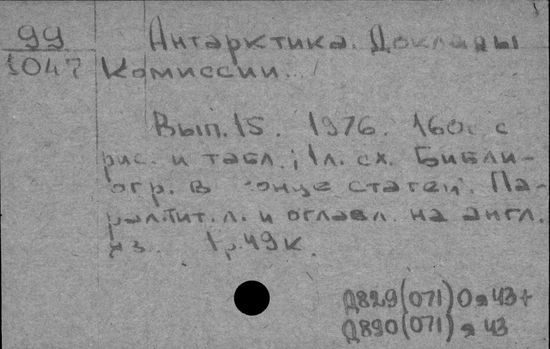 99
5047
Антарктика. Доклады
Комиссии...
Вып. 15. 1976. 160 с. с
рис. и табл.; 1 л. сх. Библи-
огр. в конце статей. Па-
рал. тит. л. и оглавл. на англ.
яз. 1р. 49к.
Д829(071)0я43+
Д890(071)я43